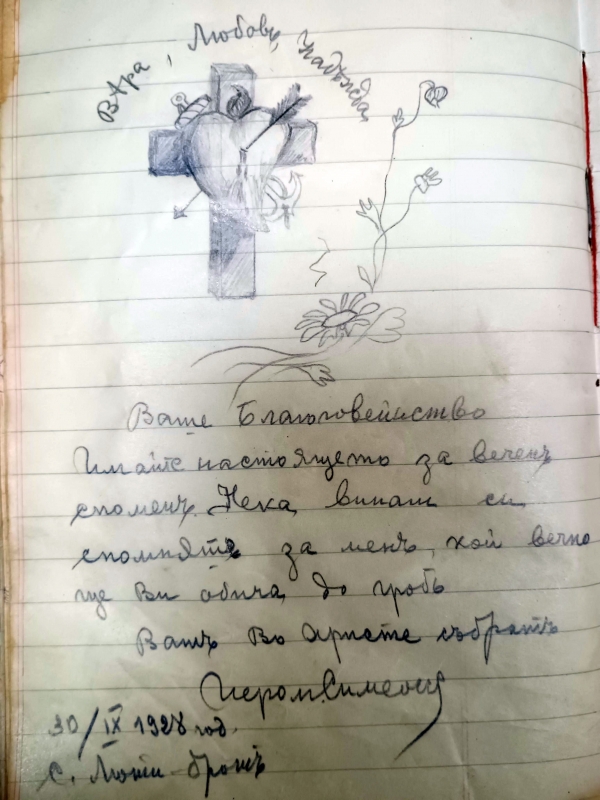 Вѣра, Любовь, Надѣжда
Ваше Благоговейнство
Имайте настоящето за веченъ
споменъ. Нека винаги си
спомняте за менъ, кой вечно
ще Ви обича до гробъ
Вашъ Во Христе събратъ
Иером. Симеонъ
30/IX 1928 год.
с. Люти-бродъ